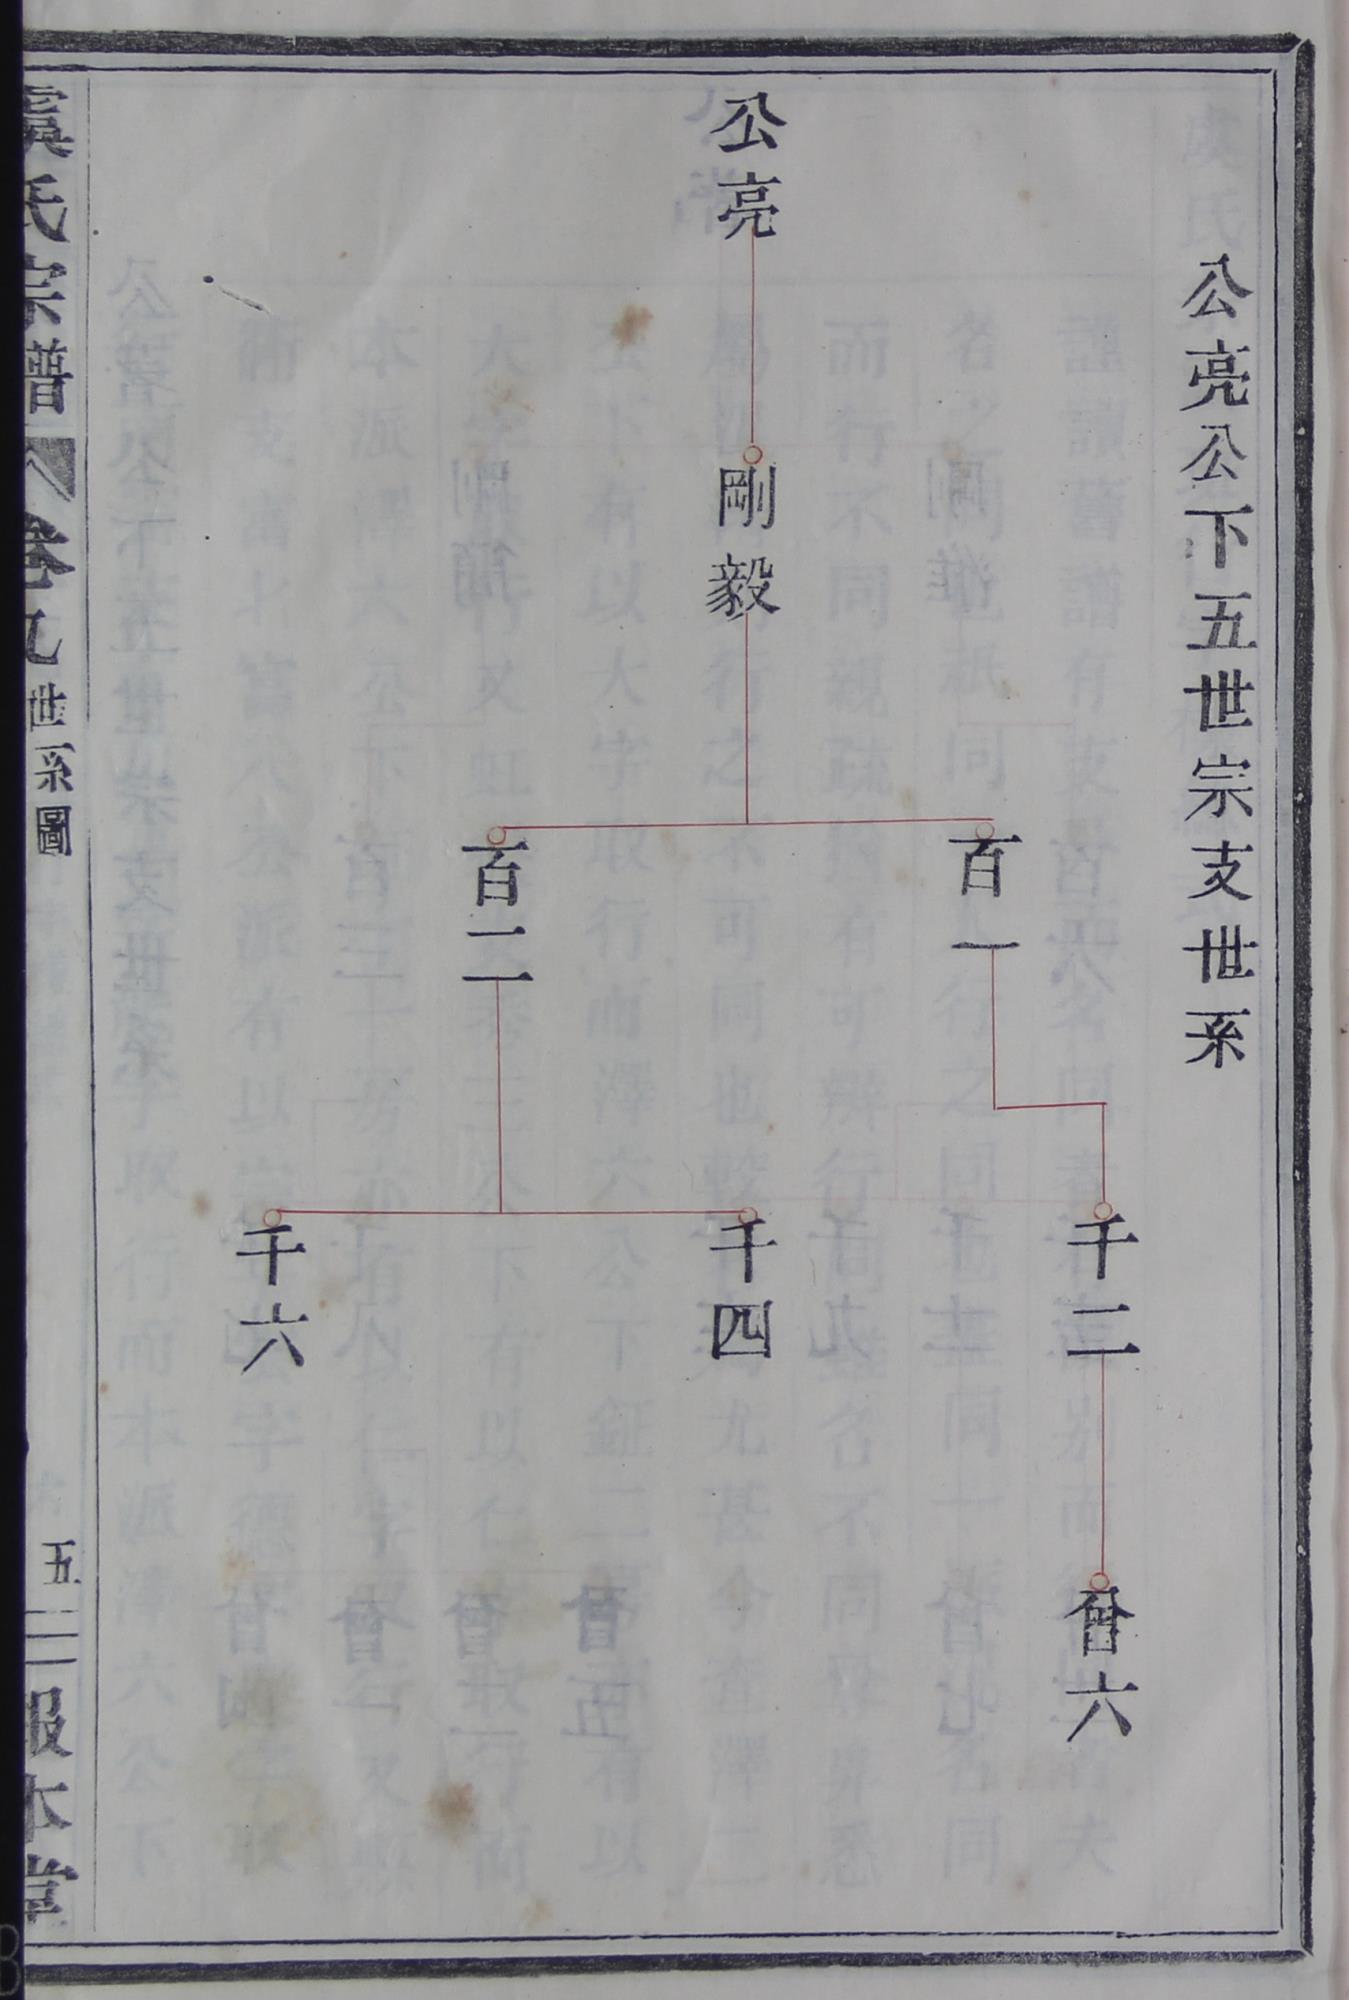 公亮公下五世宗支世系
公亮
剛毅
百一
百二
千二
千四
千六
曾六
虞氏宗譜
卷九
世系圖
五
報本堂